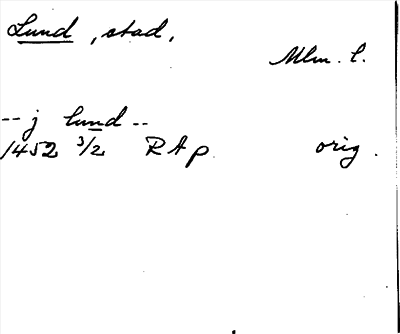 Lund, stad,
Mlm. l.
-- j lund --
1452 3/2 RAp orig.